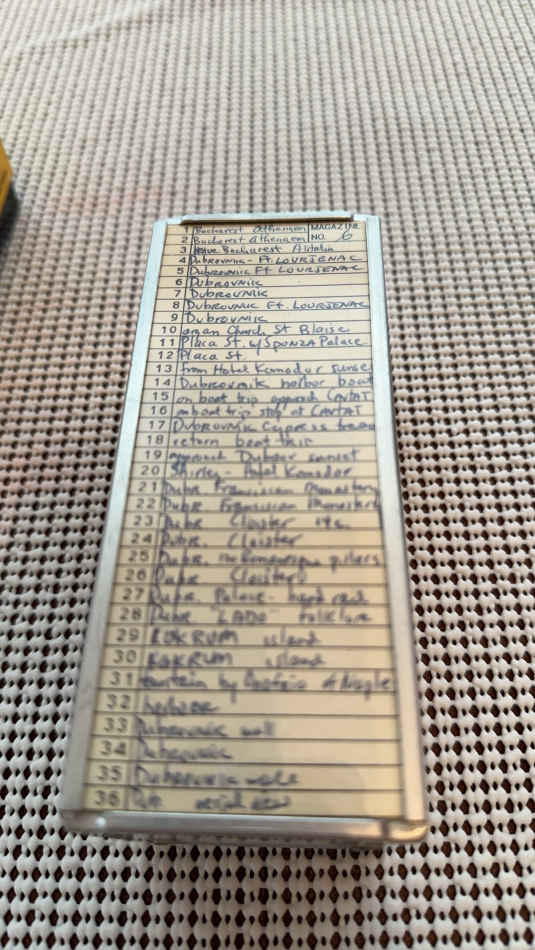 1 Bucharest Athenaeum MAGAZINE
2 Bucharest Athenaeum NO. 6
3 Bucharest
4 Dubrovnik - Ft. LOURJENAC
5 Dubrovnik Ft LOURJENAC
6 Dubrovnik
7 Dubrovnik
8 Dubrovnik Ft. LOURJENAC
9 Dubrovnik
10 organ Church St Blaise
11 Placa St. w/ SPONZA Palace
12 Placa St.
13 from Hotel Komodor sunset
14 Dubrovnik harbor boat
15 on boat trip approach CAVTAT
16 on boat trip stop at CAVTAT
17 DUBROVNIK Cypress trees
18 return boat trip
19 approach Dubrov sunset
20 Shirley - Hotel Komodor
21 Dubr. Franciscan Monastery
22 Dubr. Franciscan Monastery
23 Dubr Cloister 14c.
24 Dubr. Cloister
25 Dubr. Romanesque pillars
26 Dubr Cloister
27 Dubr. Palace -
28 Dubr "LADO" folklore
29 KOKRUM island
30 KOKRUM island
31 fountain by Onofrio
32 harbor
33 Dubrovnik wall
34 Dubrovnik
35 Dubrovnik walls
36 Dub. aerial view